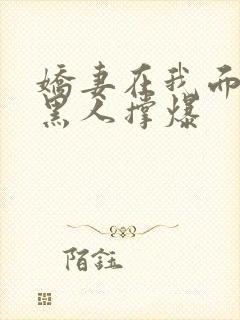 娇妻在我面
黑人撑爆
陌鈺